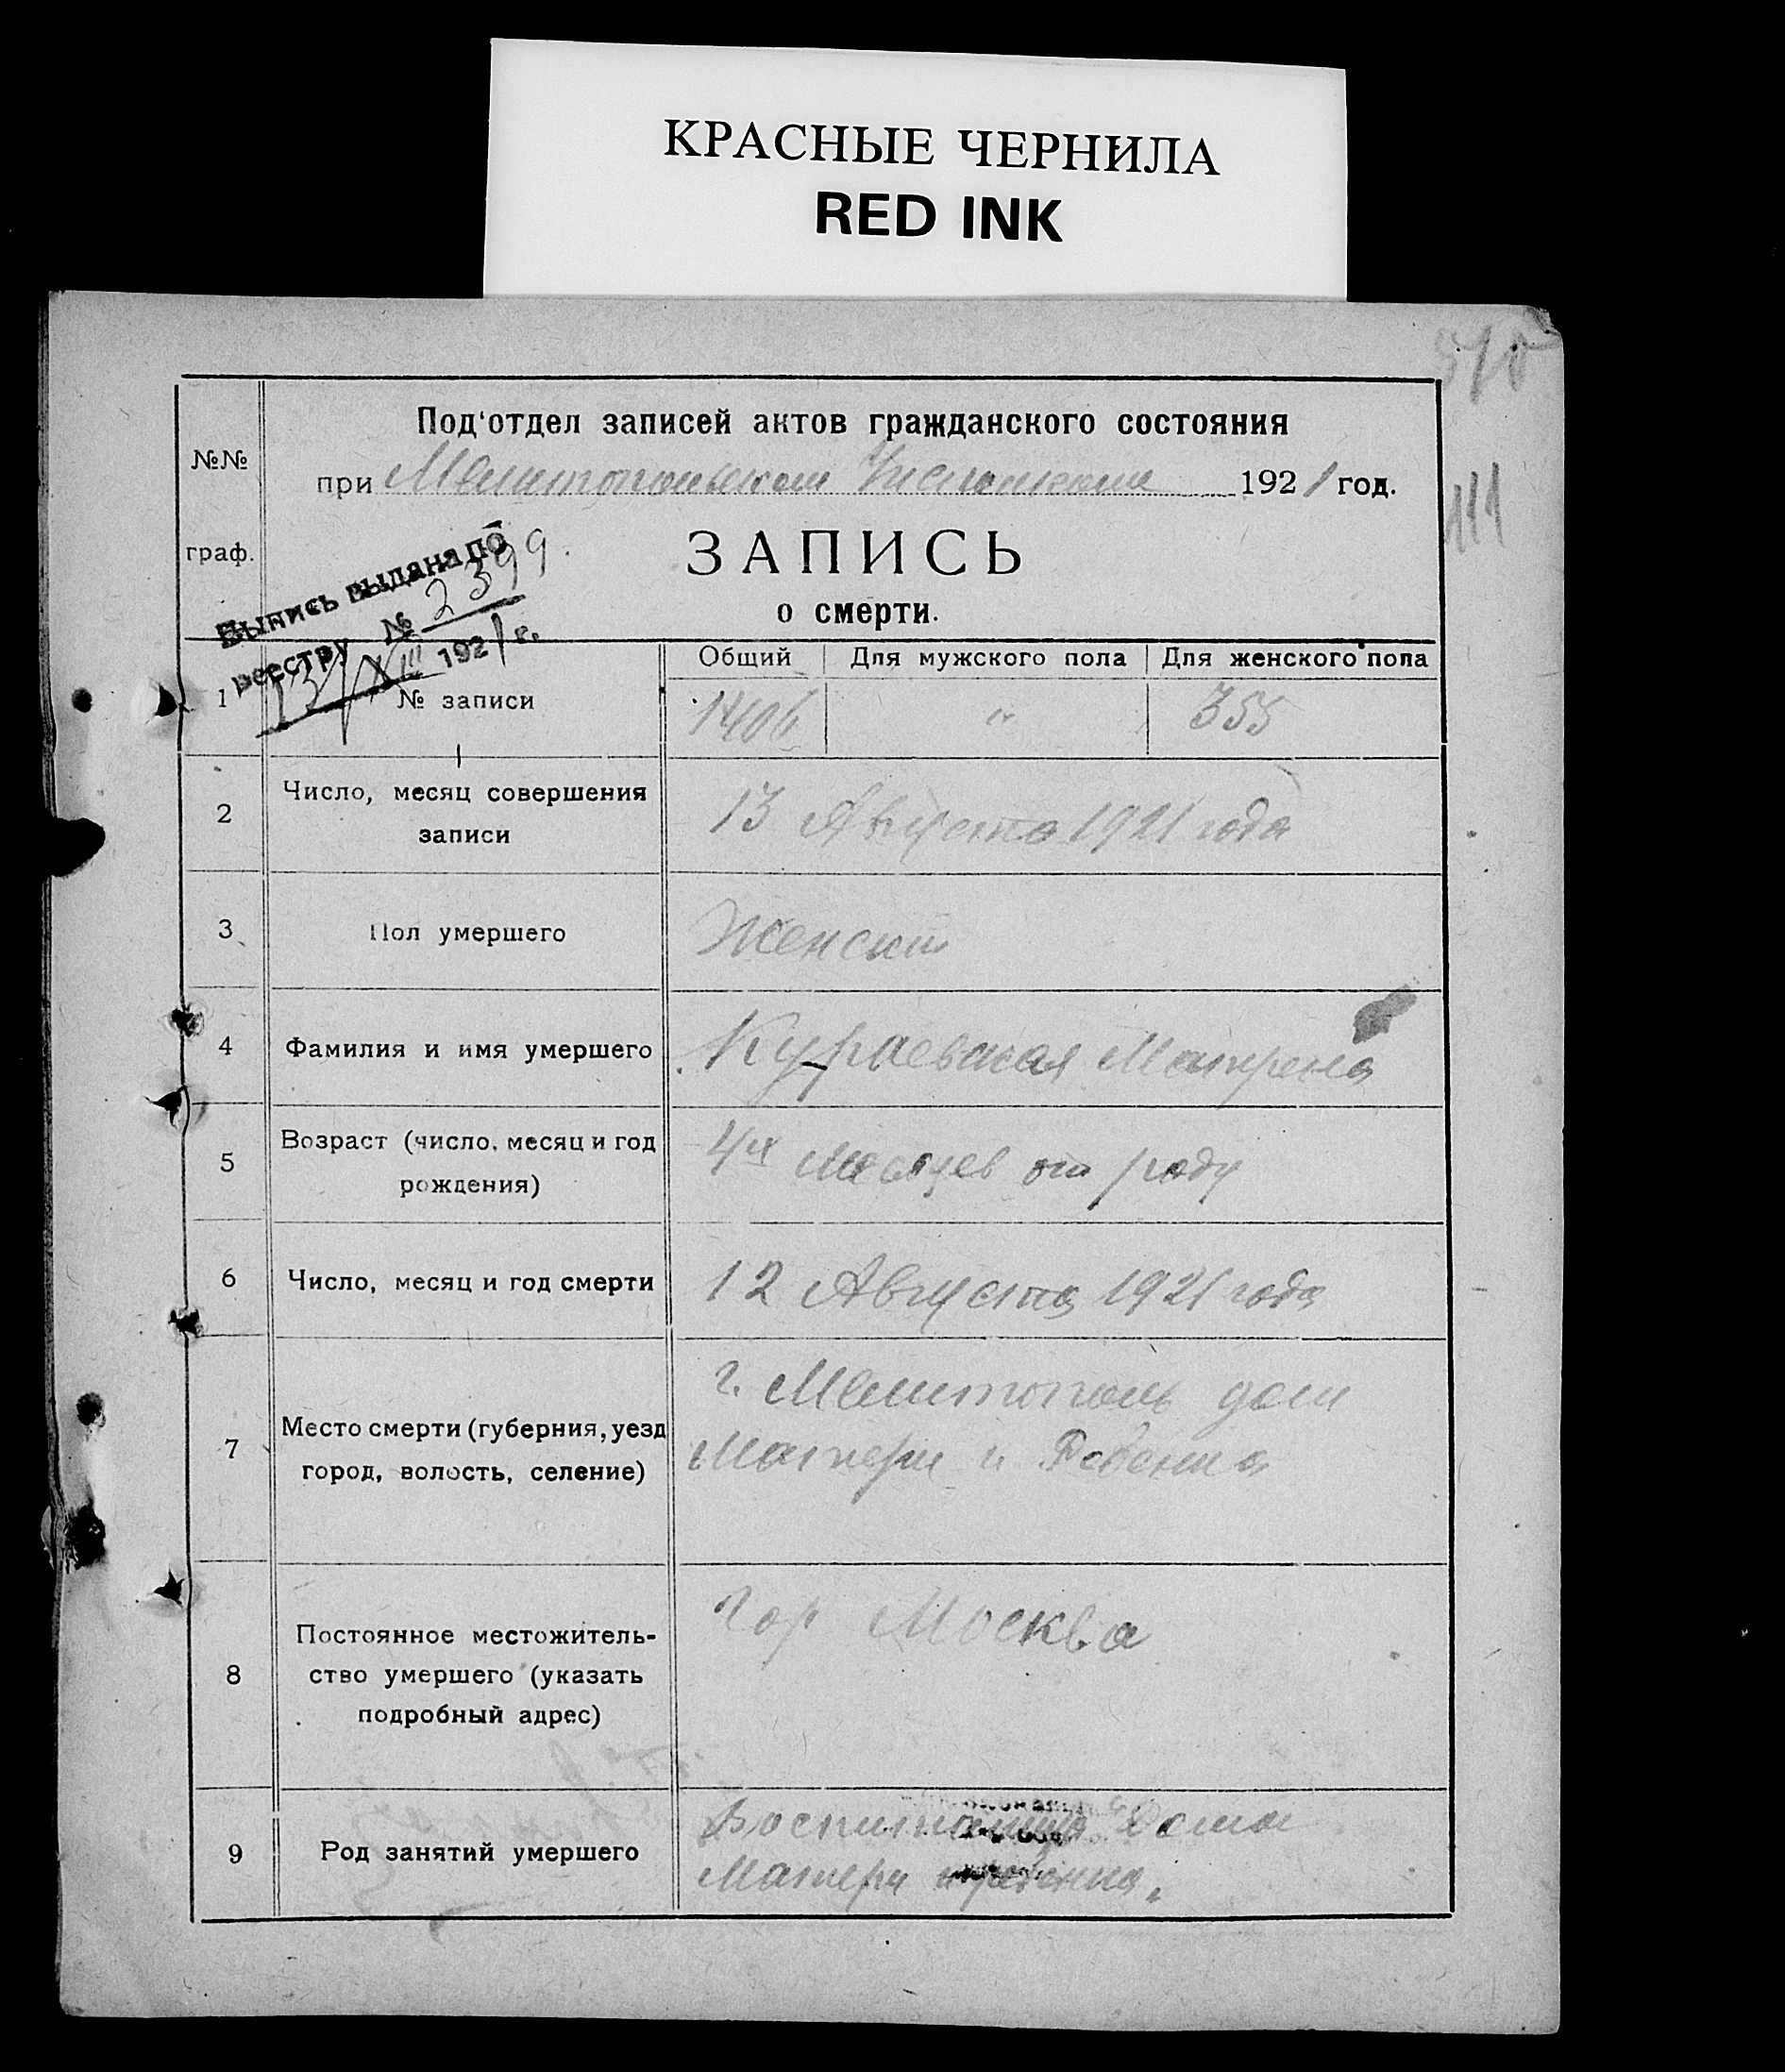 КРАСНЫЕ ЧЕРНИЛА
RED INK
Под'отдел записей актов гражданского состояния
№№
при Мелитопольском 1921 год.
111
граф.
ЗАПИСЬ
о смерти.
Выпись выдана по
реестру № 2399.
13/VIII 1921 г.
Общий Для мужского пола Для женского пола
1 № записи 1406 " 355
2 Число, месяц совершения
записи
13 Августа 1921 года
3 Пол умершего Женский
4 Фамилия и имя умершего Кураевская Матрена
5 Возраст (число, месяц и год
рождения)
4х месяцев от роду
6 Число, месяц и год смерти 12 Августа 1921 года
7 Место смерти (губерния, уезд
город, волость, селение)
г. Мелитополь дом
Матери и Ребенка
8 Постоянное местожитель-
ство умершего (указать
подробный адрес)
Гор Москва
9 Род занятий умершего
Дома
Матери и ребенка.